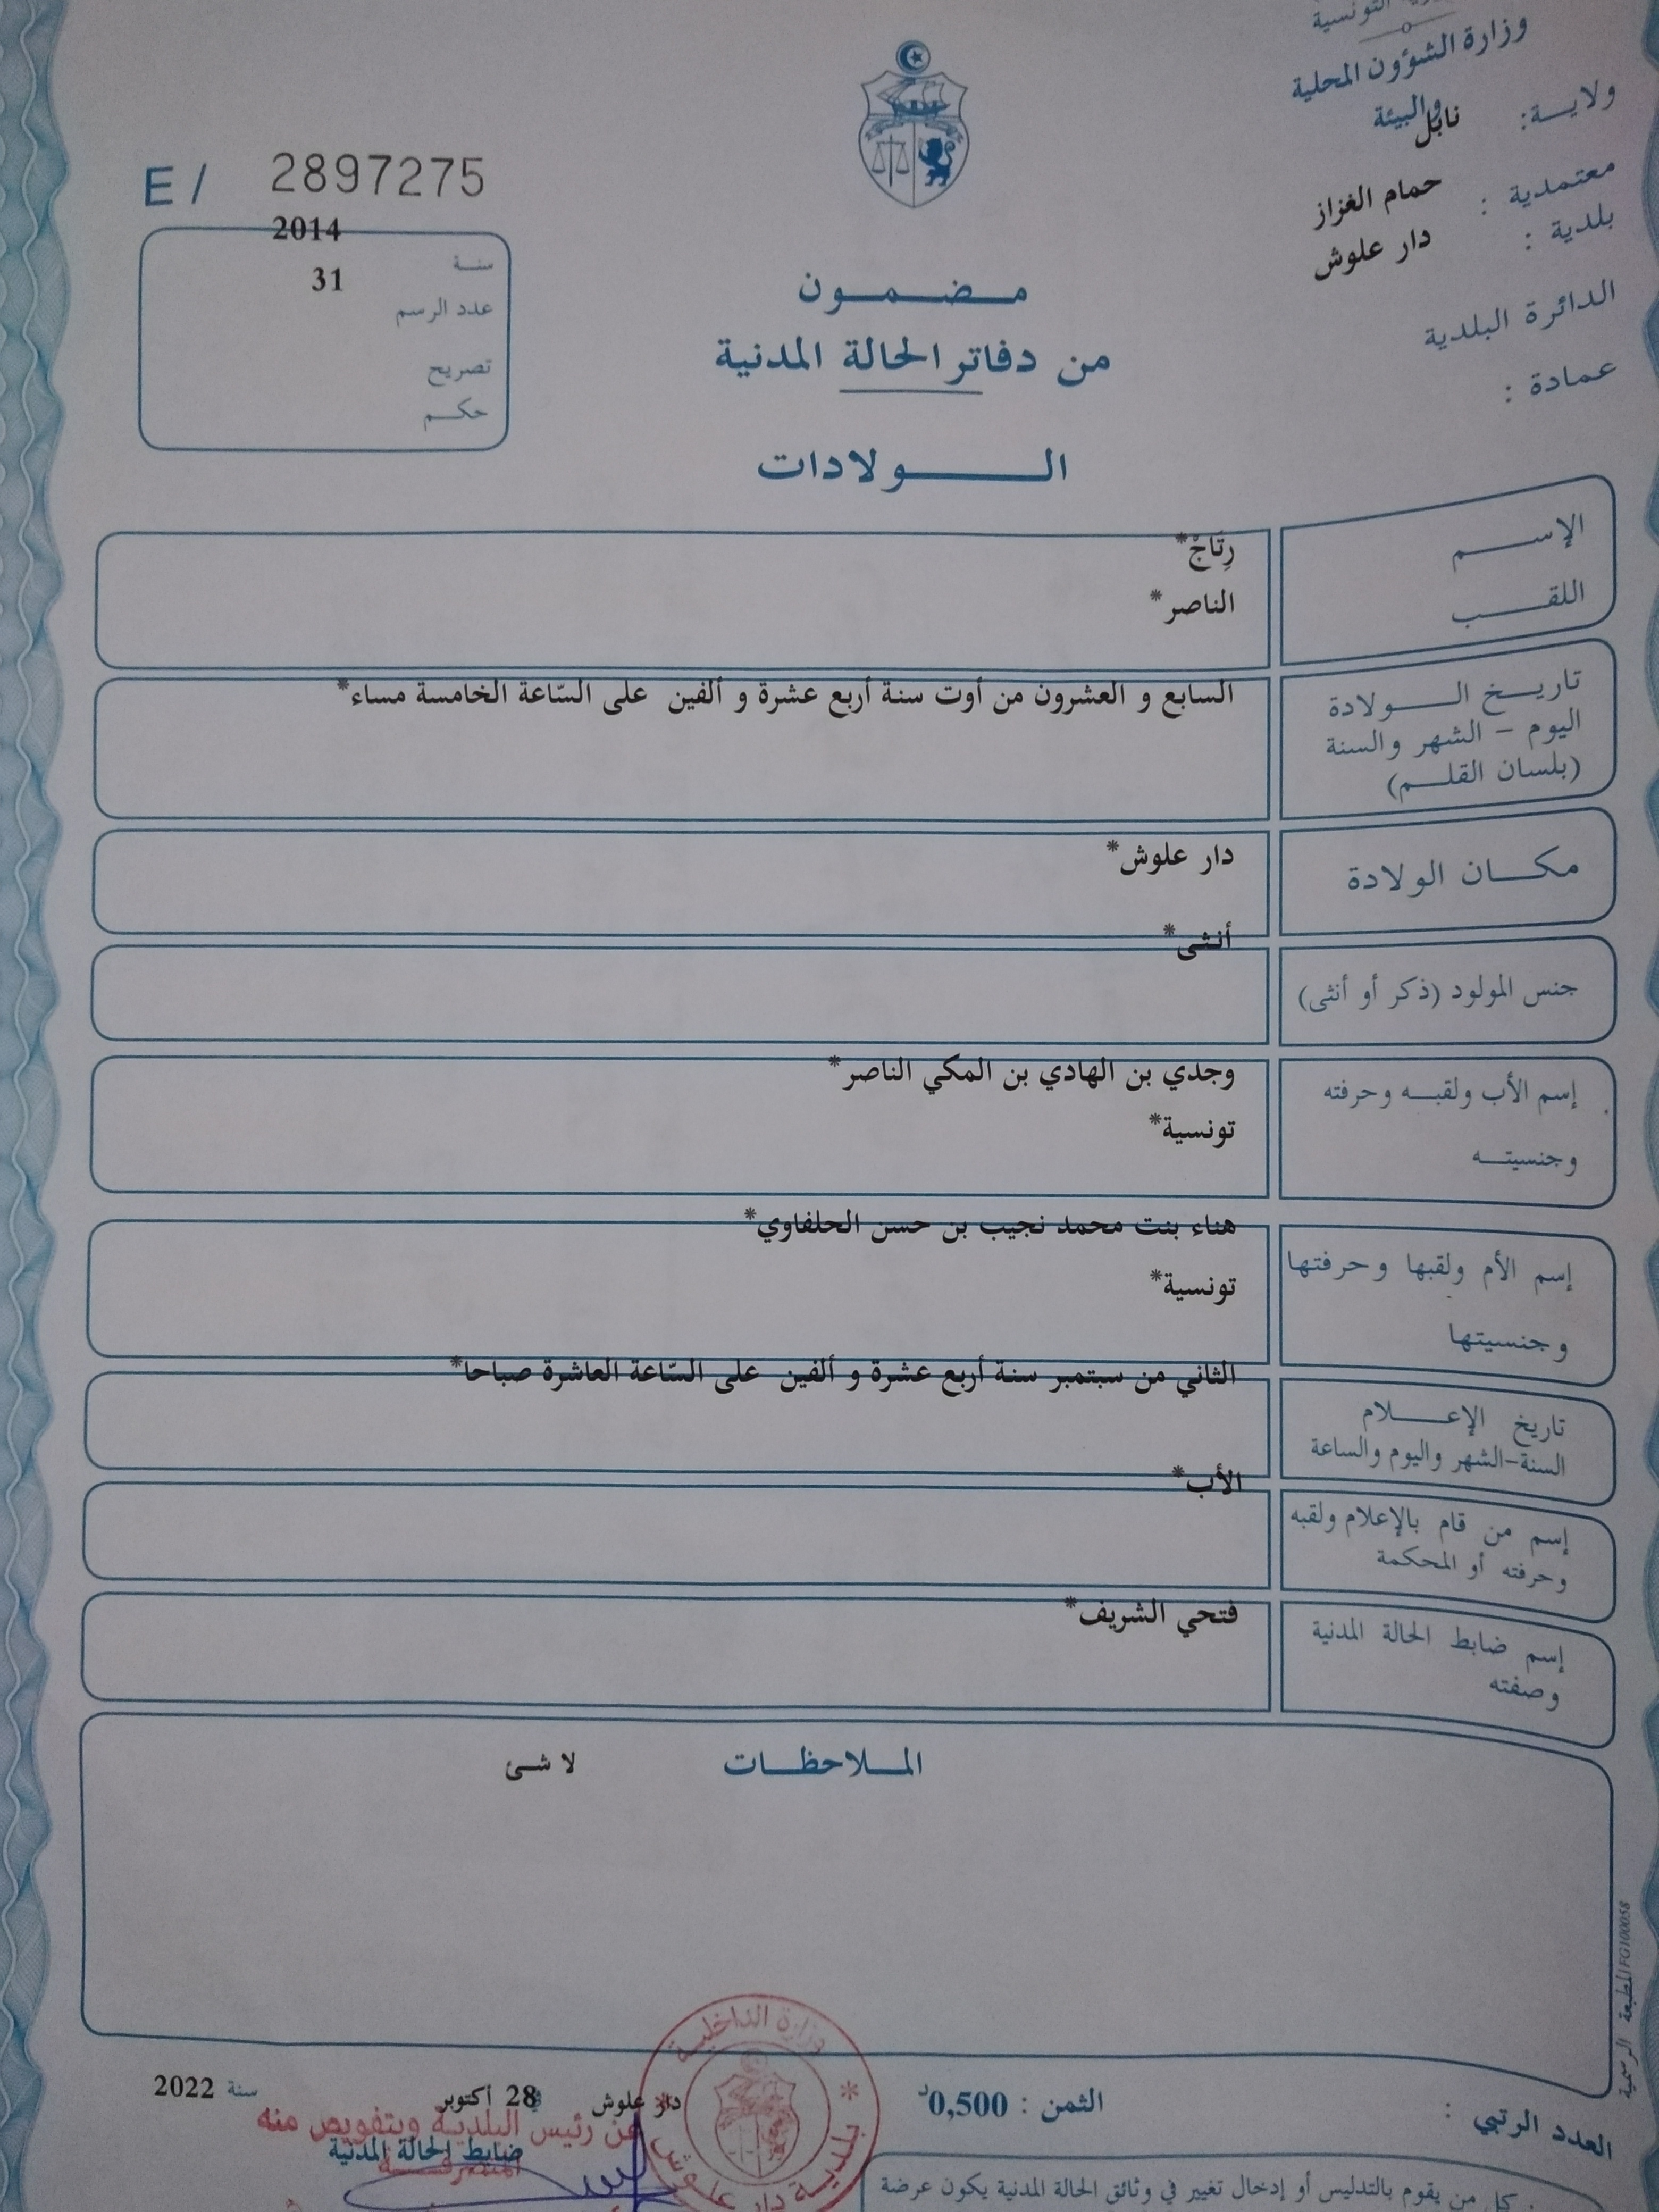 التونسية
وزارة الشؤون المحلية
والبيئة
ولايـــة: نابل
معتمدية : حمام الغزاز
بلدية : دار علوش
الدائرة البلدية
عمادة :
E / 2897275
سنة 2014
عدد الرسم 31
تصريح
حكم
مـضـمـون
من دفاتر الحالة المدنية
الـولادات
الإســـم رِتَاجْ*
اللقـــب الناصر*
تاريـخ الـــولادة السابع و العشرون من أوت سنة أربع عشرة و ألفين على السّاعة الخامسة مساء*
اليوم – الشهر والسنة
(بلسان القلـم)
مكــان الولادة دار علوش*
جنس المولود (ذكر أو أنثى) أنثى*
إسم الأب ولقبـه وحرفته وجدي بن الهادي بن المكي الناصر*
وجنسيتـه تونسية*
إسم الأم ولقبها وحرفتها هناء بنت محمد نجيب بن حسن الحلفاوي*
وجنسيتها تونسية*
تاريخ الإعـــلام الثاني من سبتمبر سنة أربع عشرة و ألفين على السّاعة العاشرة صباحا*
السنة-الشهر واليوم والساعة
إسم من قام بالإعلام ولقبه الأب*
وحرفته أو المحكمة
إسم ضابط الحالة المدنية فتحي الشريف*
وصفته
المـلاحظـات لا شئ
المطبعة الرسمية FG100058
العدد الرتبي :
الثمن : 0,500د
دار علوش في 28 أكتوبر سنة 2022
عن رئيس البلدية وبتفويض منه
ضابط الحالة المدنية
المتصرفـــة
وزارة الداخلية
بلدية دار علوش
كل من يقوم بالتدليس أو إدخال تغيير في وثائق الحالة المدنية يكون عرضة